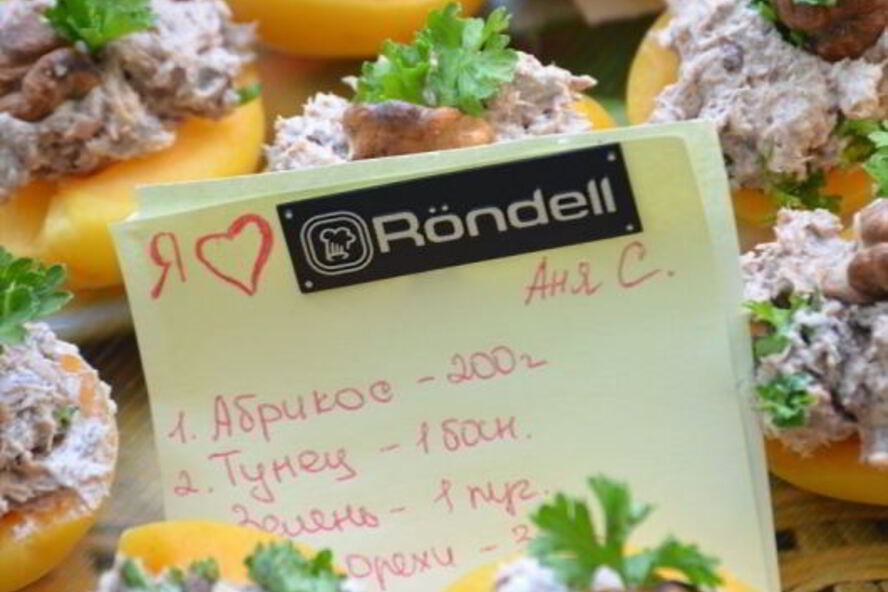 Я ❤ Röndell
Аня С.
1. Абрикос - 200г
2. Тунец - 1 бан.
Зелень - 1 пуг.
орехи -